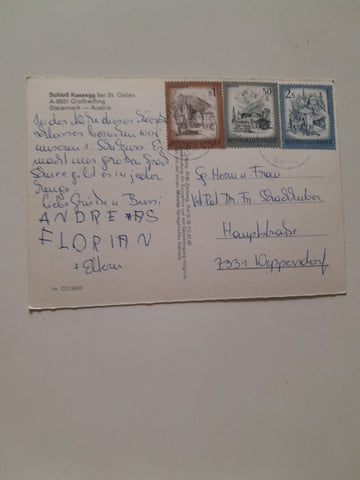 Schloß Kassegg bei St. Gallen
A-8931 Großreifling
Steiermark — Austria
In der Nähe dieses
besuchen wir
unseren 1. Schikurs. Es
macht uns großen Spaß
Schnee gibt es in jeder
Menge.
Liebe Grüße u. Bussi
ANDREAS
FLORIAN
+ Eltern
Nr. CO
S1
50
2S
REPUBLIK ÖSTERREICH
REPUBLIK ÖSTERREICH
REPUBLIK ÖSTERREICH
Herrn u. Frau
Dr. Fr.
Hauptstraße
7331 Weppersdorf